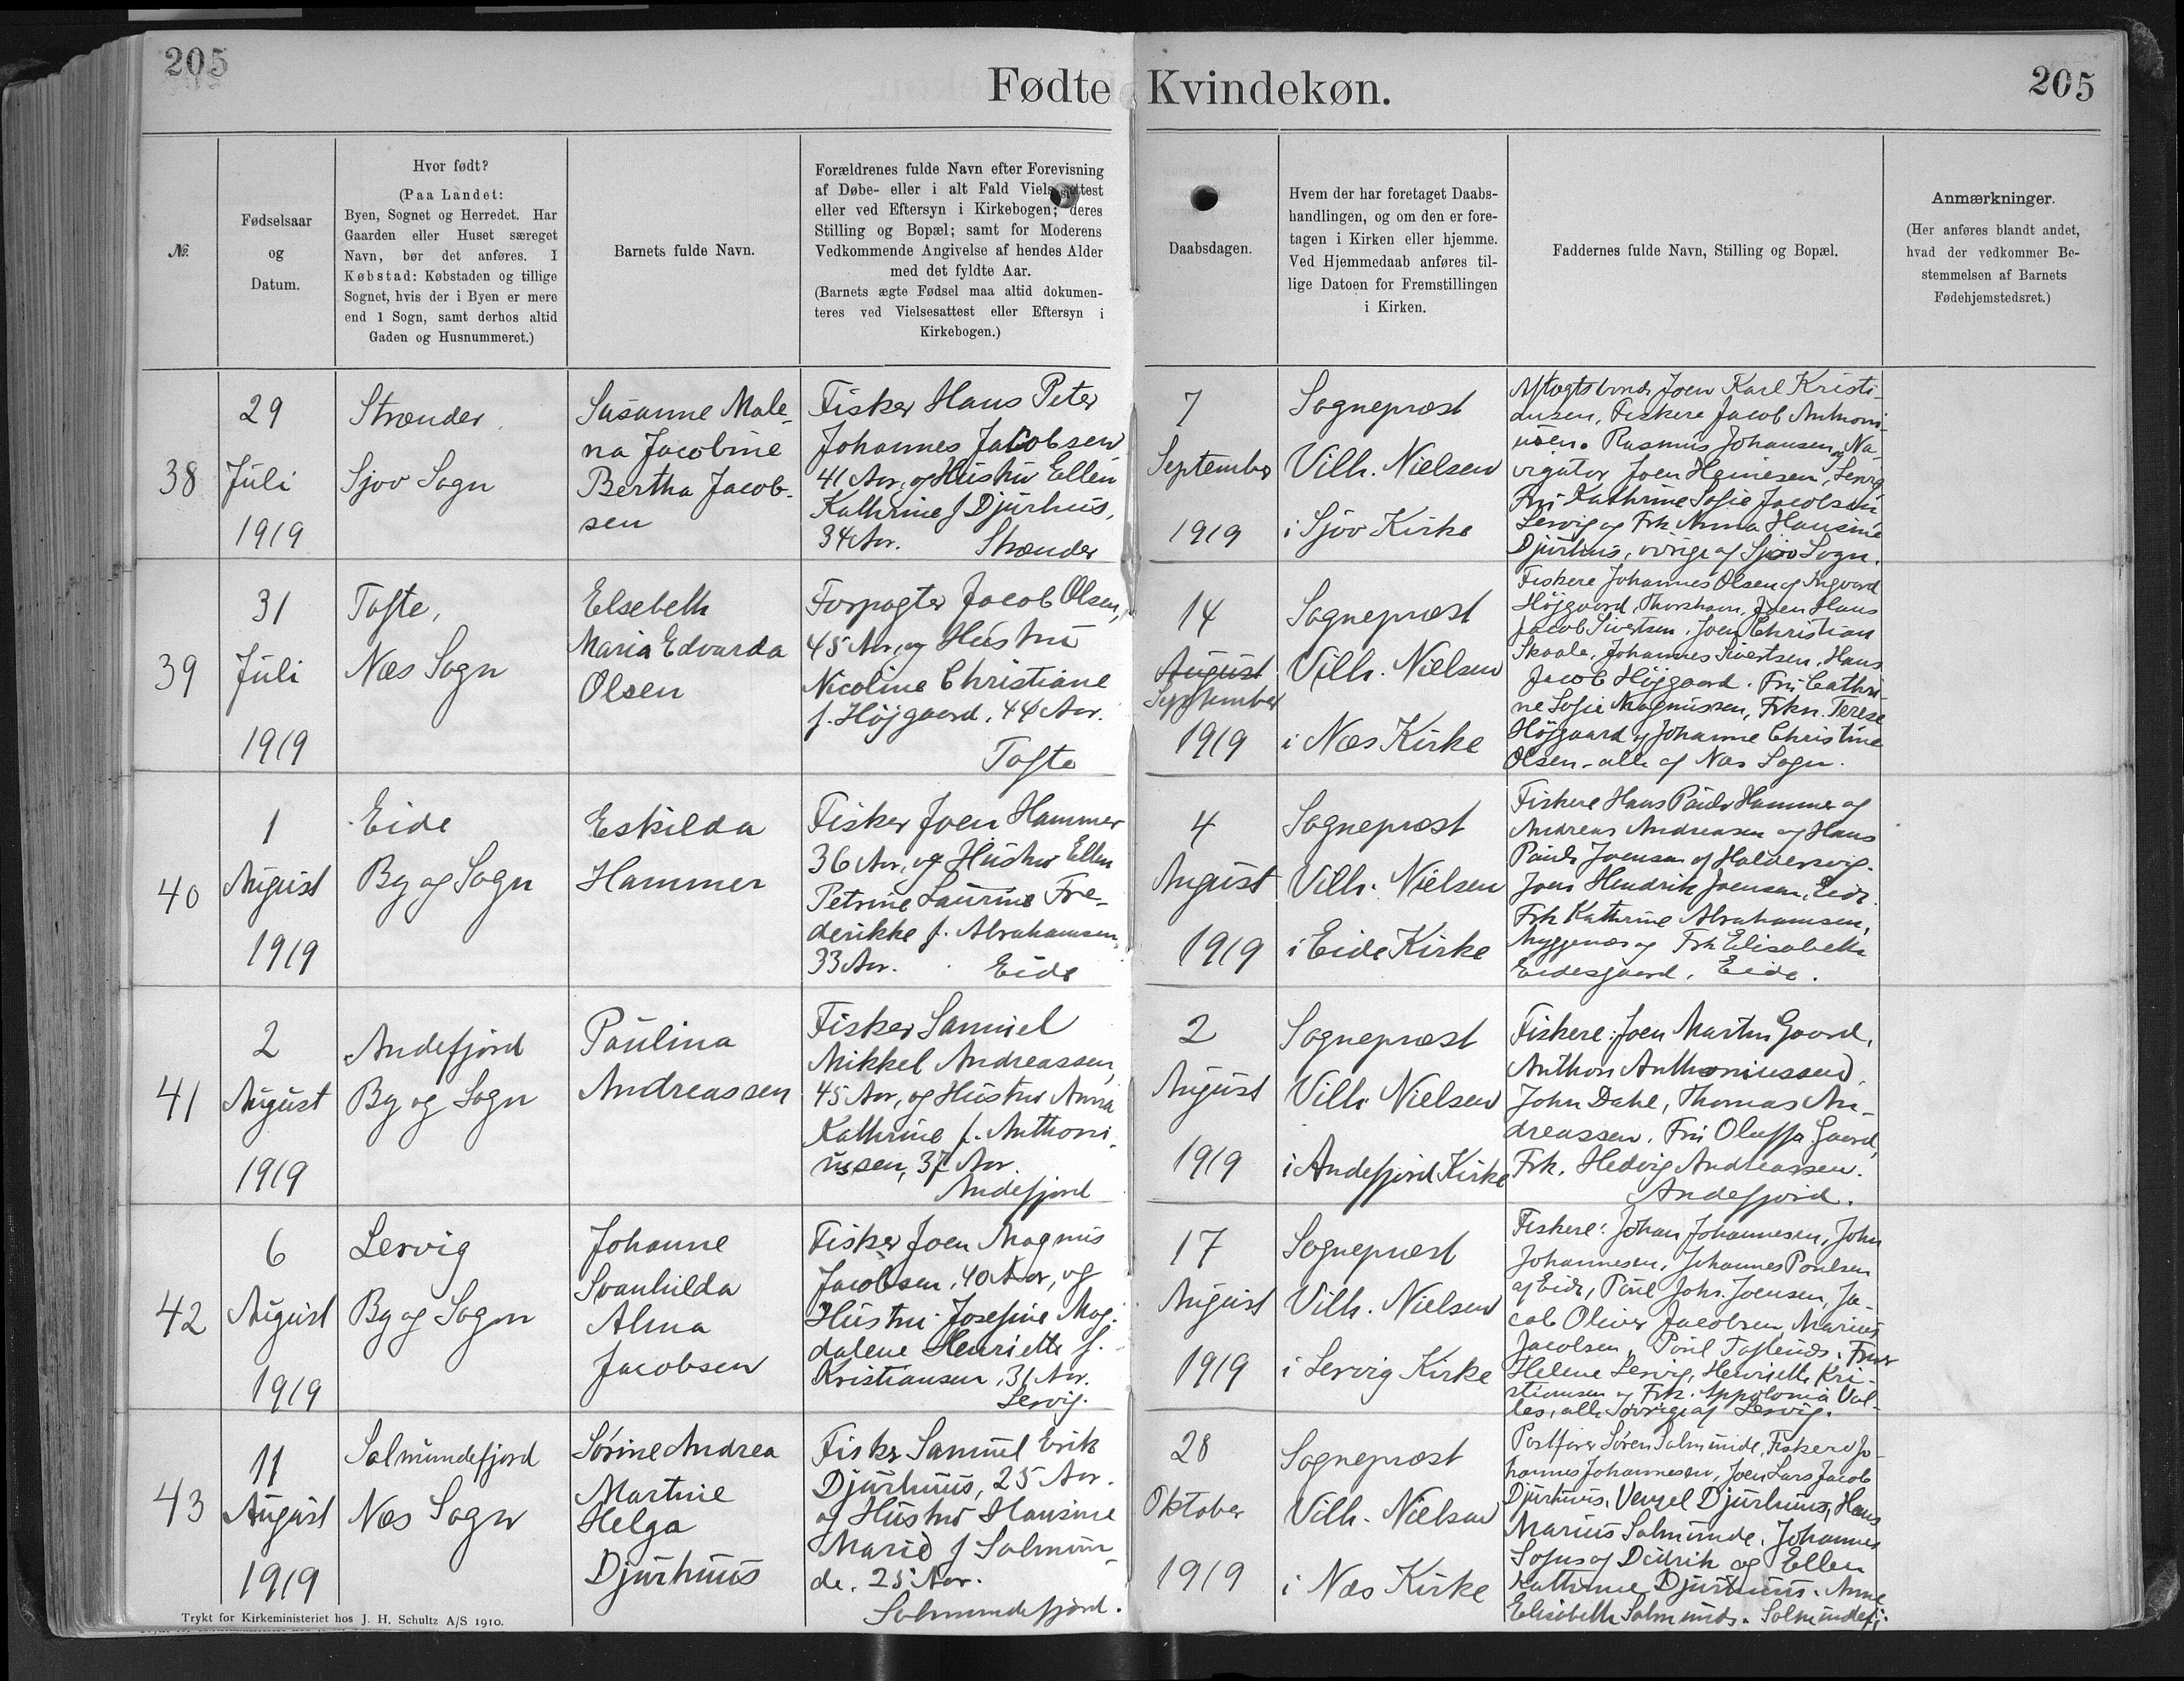 205
205
Fødte Kvindekøn.
№
Fødselsaar
og
Datum.
Hvor født?
(Paa Landet:
Byen, Sognet og Herredet. Har
Gaarden eller Huset særeget
Navn, bør det anføres. I
Købstad: Købstaden og tillige
Sognet, hvis der i Byen er mere
end 1 Sogn, samt derhos altid
Gaden og Husnummeret.)
Barnets fulde Navn.
Forældrenes fulde Navn efter Forevisning
af Døbe- eller i alt Fald Vielsesattest
eller ved Eftersyn i Kirkebogen; deres
Stilling og Bopæl; samt for Moderens
Vedkommende Angivelse af hendes Alder
med det fyldte Aar.
(Barnets ægte Fødsel maa altid dokumen-
teres ved Vielsesattest eller Eftersyn i
Kirkebogen.)
Daabsdagen.
Hvem der har foretaget Daabs-
handlingen, og om den er fore-
tagen i Kirken eller hjemme.
Ved Hjemmedaab anføres til-
lige Datoen for Fremstillingen
i Kirken.
Faddernes fulde Navn, Stilling og Bopæl.
Anmærkninger.
(Her anføres blandt andet,
hvad der vedkommer Be-
stemmelsen af Barnets
Fødehjemstedsret.)
38
29
Juli
1919
Strænder
Sjov Sogn
Susanne Male-
na Jacobine
Bertha Jacob-
sen
Fisker Hans Peter
Johannes Jacobsen
41 Aar, og Hustru Ellen
Kathrine f Djurhus,
34 Aar. Strænder
7
September
1919
Sognepræst
Vilh. Nielsen
i Sjov Kirke
Aftægtsbonde Joen Karl Kristi-
ansen, Fiskere Jacob Anthoni-
usen. Rasmus Johansen, Na-
vigatør Joen Heinesen, Lervig
Fru Kathrine Sofie Jacobsen
Lervig og Frk Anna Hansine
Djurhus, øvrige af Sjov Sogn.
39
31
Juli
1919
Tofte,
Næs Sogn
Elsebeth
Maria Edvarda
Olsen
Forpagter Jacob Olsen,
45 Aar, og Hustru
Nicoline Christiane
f. Højgaard, 44 Aar.
Tofte
14
August
September
1919
Sognepræst
Vilh. Nielsen
i Næs Kirke
Fiskere Johannes Olsen og Ingvard
Højgaard, Thorshavn, Joen Hans
Jacob Sivertsen. Joen Christian
Skaale, Johannes Sivertsen, Hans
Jacob Højgaard. Fru Cathri-
ne Sofie Magnussen, Frkn. Terese
Højgaard og Johanne Christine
Olsen - alle af Næs Sogn.
40
1
August
1919
Eide
By og Sogn
Eskilda
Hammer
Fisker Joen Hammer
36 Aar, og Hustru Ellen
Petrine Laurine Fre-
derikke f. Abrahamsen,
33 Aar. Eide
4
August
1919
Sognepræst
Vilh. Nielsen
i Eide Kirke
Fiskere Hans Pauli Hammer og
Andreas Andreasen og Hans
Pauli Joensen af Haldersvig.
Joen Hendrik Joensen, Eide.
Frk Kathrine Abrahamsen,
Myggenæs og Frk Elisabeth
Eidesgaard, Eide.
41
2
August
1919
Andefjord
By og Sogn
Paulina
Andreassen
Fisker Samuel
Mikkel Andreassen,
45 Aar, og Hustru Anna
Kathrine f. Anthoni-
ussen, 37 Aar.
Andefjord
2
August
1919
Sognepræst
Vilh Nielsen
i Andefjord Kirke
Fiskere: Joen Martin Gaard,
Anthon Anthoniussen,
John Dahl, Thomas An-
dreassen. Fru Oluffa Gaard,
Frk. Hedvig Andreassen.
Andefjord.
42
6
August
1919
Lervig
By og Sogn
Johanne
Svanhilda
Alma
Jacobsen
Fisker Joen Magnus
Jacobsen, 40 Aar, og
Hustru Josefine Mag-
dalene Henriette f.
Kristiansen, 31 Aar.
Lervig.
17
August
1919
Sognepræst
Vilh. Nielsen
i Lervig Kirke
Fiskere: Johan Johannesen, John
Johannesen, Johannes Poulsen
af Eide, Poul Johs. Joensen, Ja-
cob Oliver Jacobsen, Marius
Jacobsen, Poul Toftlund. Fruer
Helene Lervig, Henriette Kri-
stiansen og Frk. Appolonia
alle øvrige af Lervig.
43
11
August
1919
Salmundefjord
Næs Sogn
Sørine Andrea
Martine
Helga
Djurhuus
Fisker Samuel Erik
Djurhuus, 25 Aar.
og Hustru Hansine
Marie f Salmun-
de. 25 Aar.
Salmundefjord.
28
Oktober
1919
Sognepræst
Vilh. Nielsen
i Næs Kirke
Postfører Søren Salmunde, Fiskere Jo-
hannes Johannesen, Joen Lars Jacob
Djurhuus, Venzel Djurhuus, Hans
Marius Salmunde. Johannes
Sofus og Didrik og Ellen
Kathrine Djurhuus. Anne
Elisabeth Salmunde. Salmundefj.
Trykt for Kirkeministeriet hos J. H. Schultz A/S 1910.